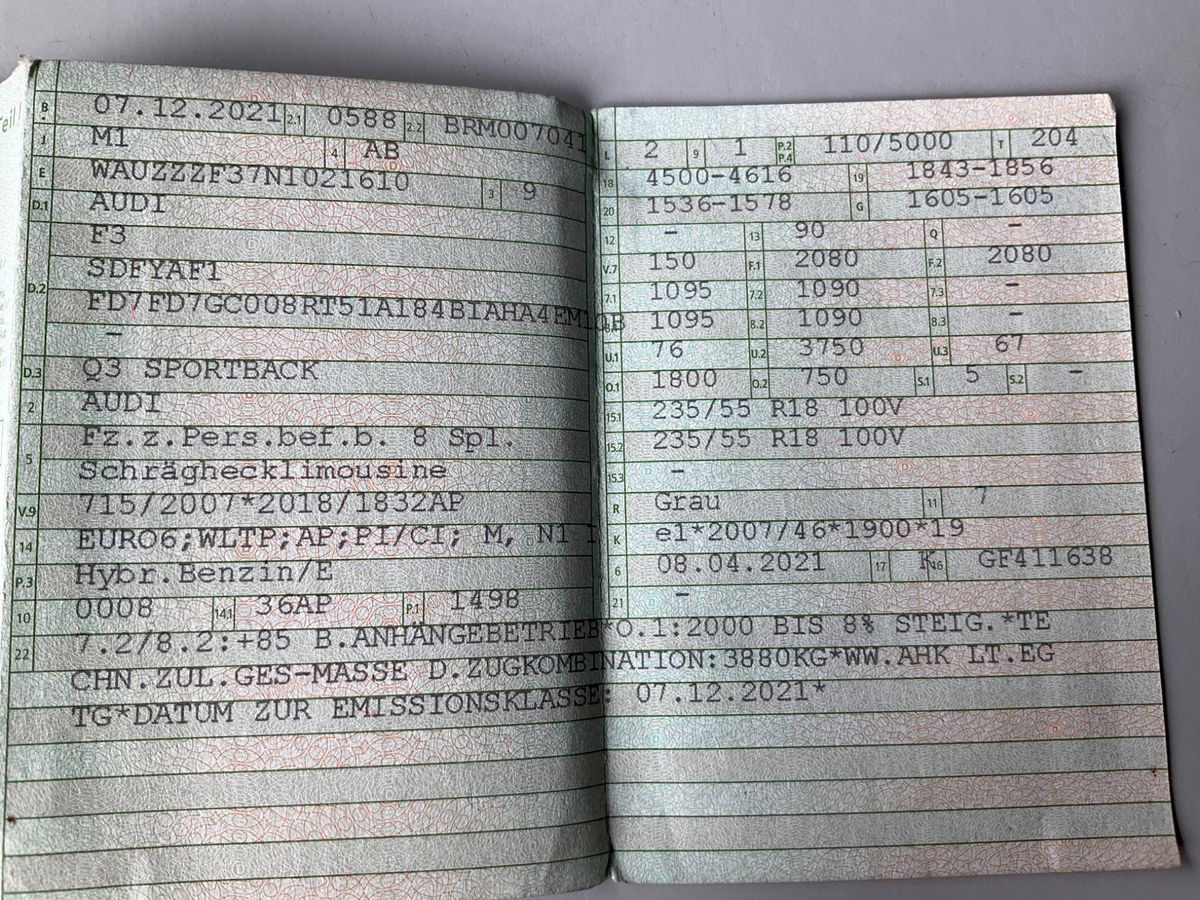 Teil I
B 07.12.2021 2.1 0588 2.2 BRM007041
J M1 4 AB
E WAUZZZF37N1021610 3 9
D.1 AUDI
F3
D.2 SDFYAF1
FD7FD7GC008RT51A184BIAHA4EM10B
-
D.3 Q3 SPORTBACK
2 AUDI
5 Fz.z.Pers.bef.b. 8 Spl.
Schräghecklimousine
V.9 715/2007*2018/1832AP
14 EURO6;WLTP;AP;PI/CI; M, N1 I
P.3 Hybr.Benzin/E
10 0008 14.1 36AP P.1 1498
L 2 9 1 P.2 P.4 110/5000 T 204
18 4500-4616 19 1843-1856
20 1536-1578 G 1605-1605
12 - 13 90 Q -
V.7 150 F.1 2080 F.2 2080
7.1 1095 7.2 1090 7.3 -
1095 8.2 1090 8.3 -
U.1 76 U.2 3750 U.3 67
O.1 1800 O.2 750 S.1 5 S.2 -
15.1 235/55 R18 100V
15.2 235/55 R18 100V
15.3 -
R Grau 11 7
K e1*2007/46*1900*19
6 08.04.2021 17 K 16 GF411638
21 -
22 7.2/8.2:+85 B.ANHÄNGEBETRIEB*O.1:2000 BIS 8% STEIG.*TE
CHN.ZUL.GES-MASSE D.ZUGKOMBINATION:3880KG*WW.AHK LT.EG
TG*DATUM ZUR EMISSIONSKLASSE: 07.12.2021*